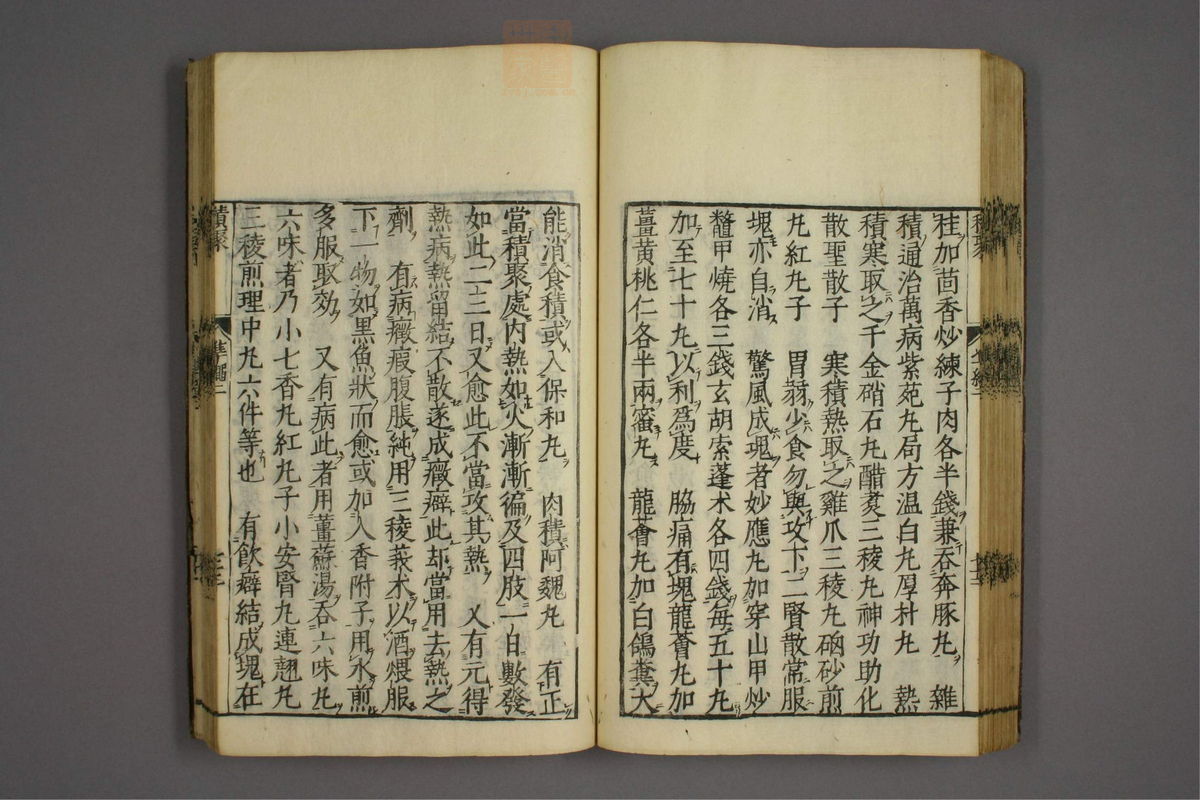 桂加茴香炒練子肉各半錢兼吞奔豚丸　雜
積通治萬病紫菀丸局方温白丸厚朴丸　熱
積寒取之千金硝石丸醋煑三稜丸神功助化
散聖散子　寒積熱取之雞爪三稜丸硇砂煎
丸紅丸子　胃弱少食勿與攻下二賢散常服
塊亦自消　驚風成塊者妙應丸加穿山甲炒
鼈甲燒各三錢玄胡索蓬术各四錢每五十丸
加至七十丸以利爲度　脇痛有塊龍薈丸加
薑黃桃仁各半兩蜜丸　龍薈丸加白鴿糞大
能消食積或入保和丸　肉積阿魏丸　有正
當積聚處内熱如火漸漸徧及四肢一日數發
如此二三日又愈此不當攻其熱　又有元得
熱病熱留結不散遂成癥癖此却當用去熱之
劑　有病癥瘕腹脹純用三稜莪术以酒煨服
下一物如黑魚狀而愈或加入香附子用水煎
多服取効　又有病此者用薑蘇湯吞六味丸
六味者乃小七香丸紅丸子小安腎丸連翹丸
三稜煎理中丸六件等也　有飲癖結成塊在
積聚